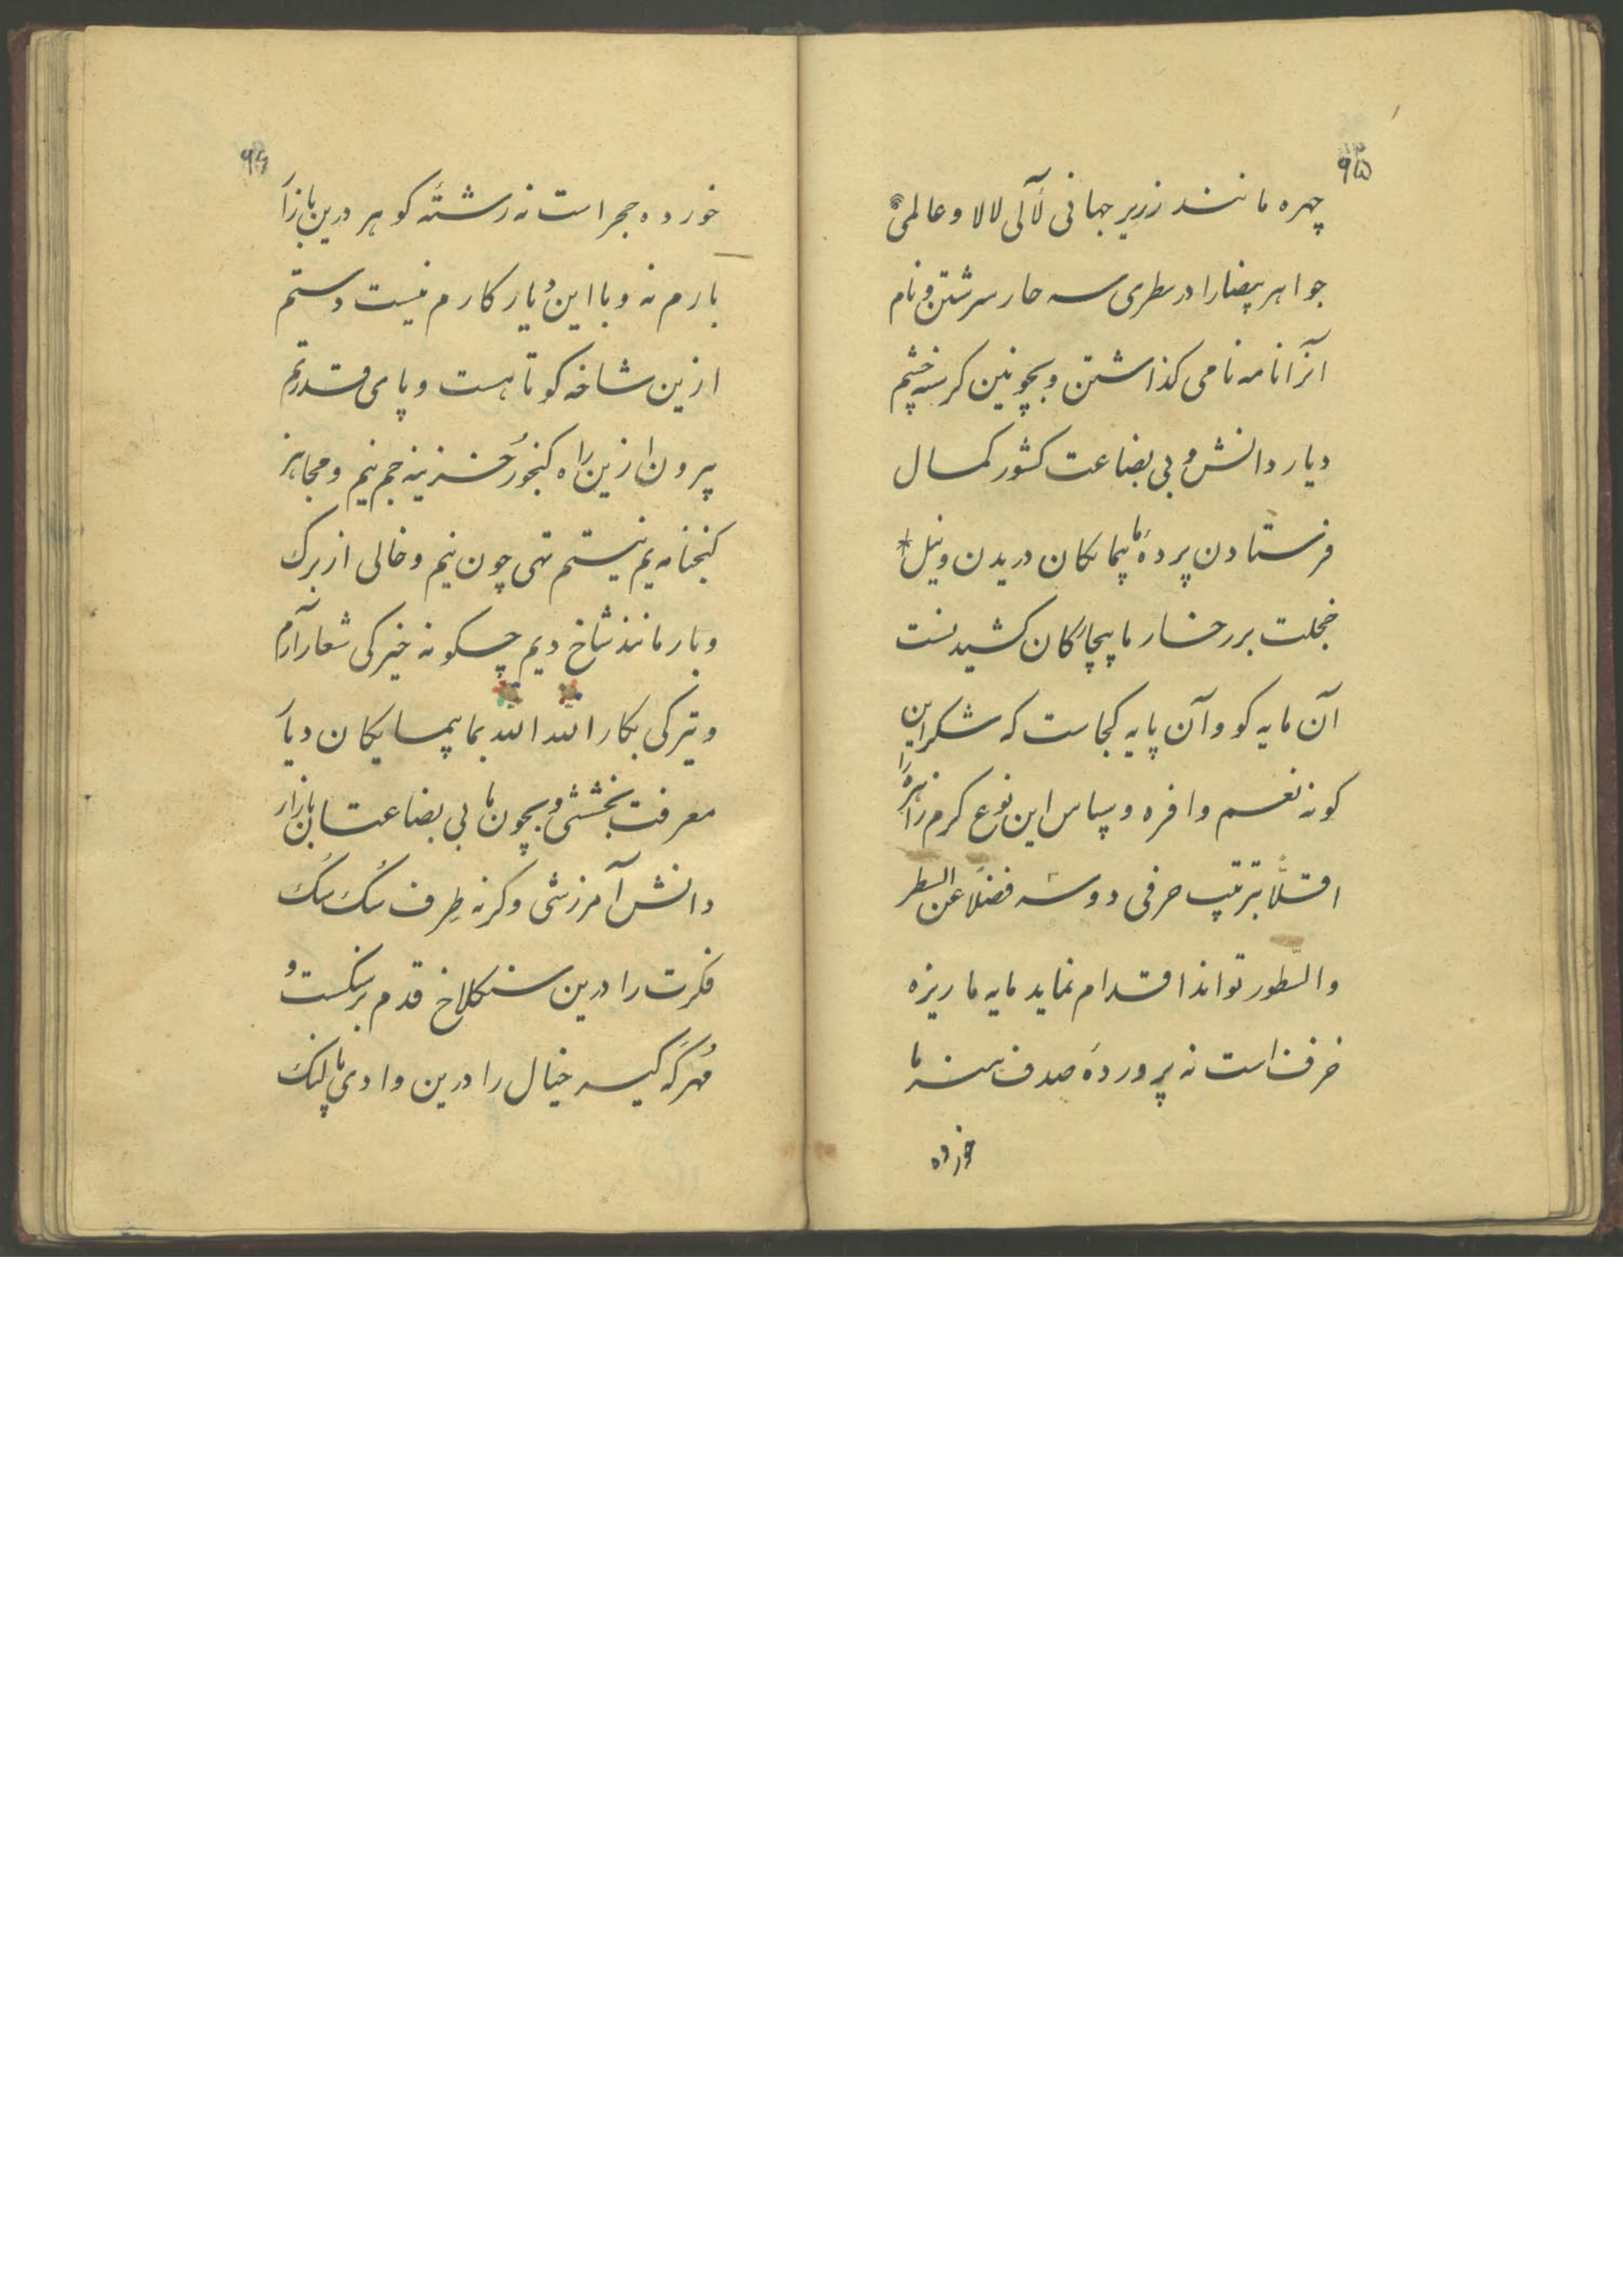 ۹۵
چهره مانند زریر جهانی لآلی لالا و عالمی
جواهر بیضا را در سطری سه چار سرشتن و نام
آنرا نامه نامی کذاشتن و بچو من کرسنه چشم
دیار دانش و بی بضاعت کشور کمال
فرستادن پردهٔ ما پیمایکان دریدن و نیل
خجلت بر رخسار ما بیچارکان کشیدنست
آن مایه کو و آن پایه کجاست که شکر این
کونه نعم وافره و سپاس این نوع کرم زاهره را
اقلًّا بترتیب حرفی دو سه فضلًا عن السطر
والسّطور تواند اقدام نماید مایه ما ریزه
خزف است نه پروردهٔ صدف سنه ما
خورده
۹۶
خورده حجر است نه رشتهٔ کوهر درین بازار
بارم نه و با این و یار کارم نیست دستم
ازین شاخه کوتاهست و پای قدرتم
بیرون ازین راه کنجور خزینه جم نیم و مجاهز
کنجخانه یم نیستم تهی چون نیم و خالی از برک
و بار مانند شاخ دیم چسکونه خیرکی شعار آرم
و تیرکی بکار الله الله بما بیمایکان دیار
معرفت بخششی و بچون ما بی بضاعتان بازار
دانش آمرزشی وکرنه طِرف سُک سُک
فکرت را درین سنکلاخ قدم بر سنکست و
مُهر کَه کیسه خیال را درین وادی ما پلنک